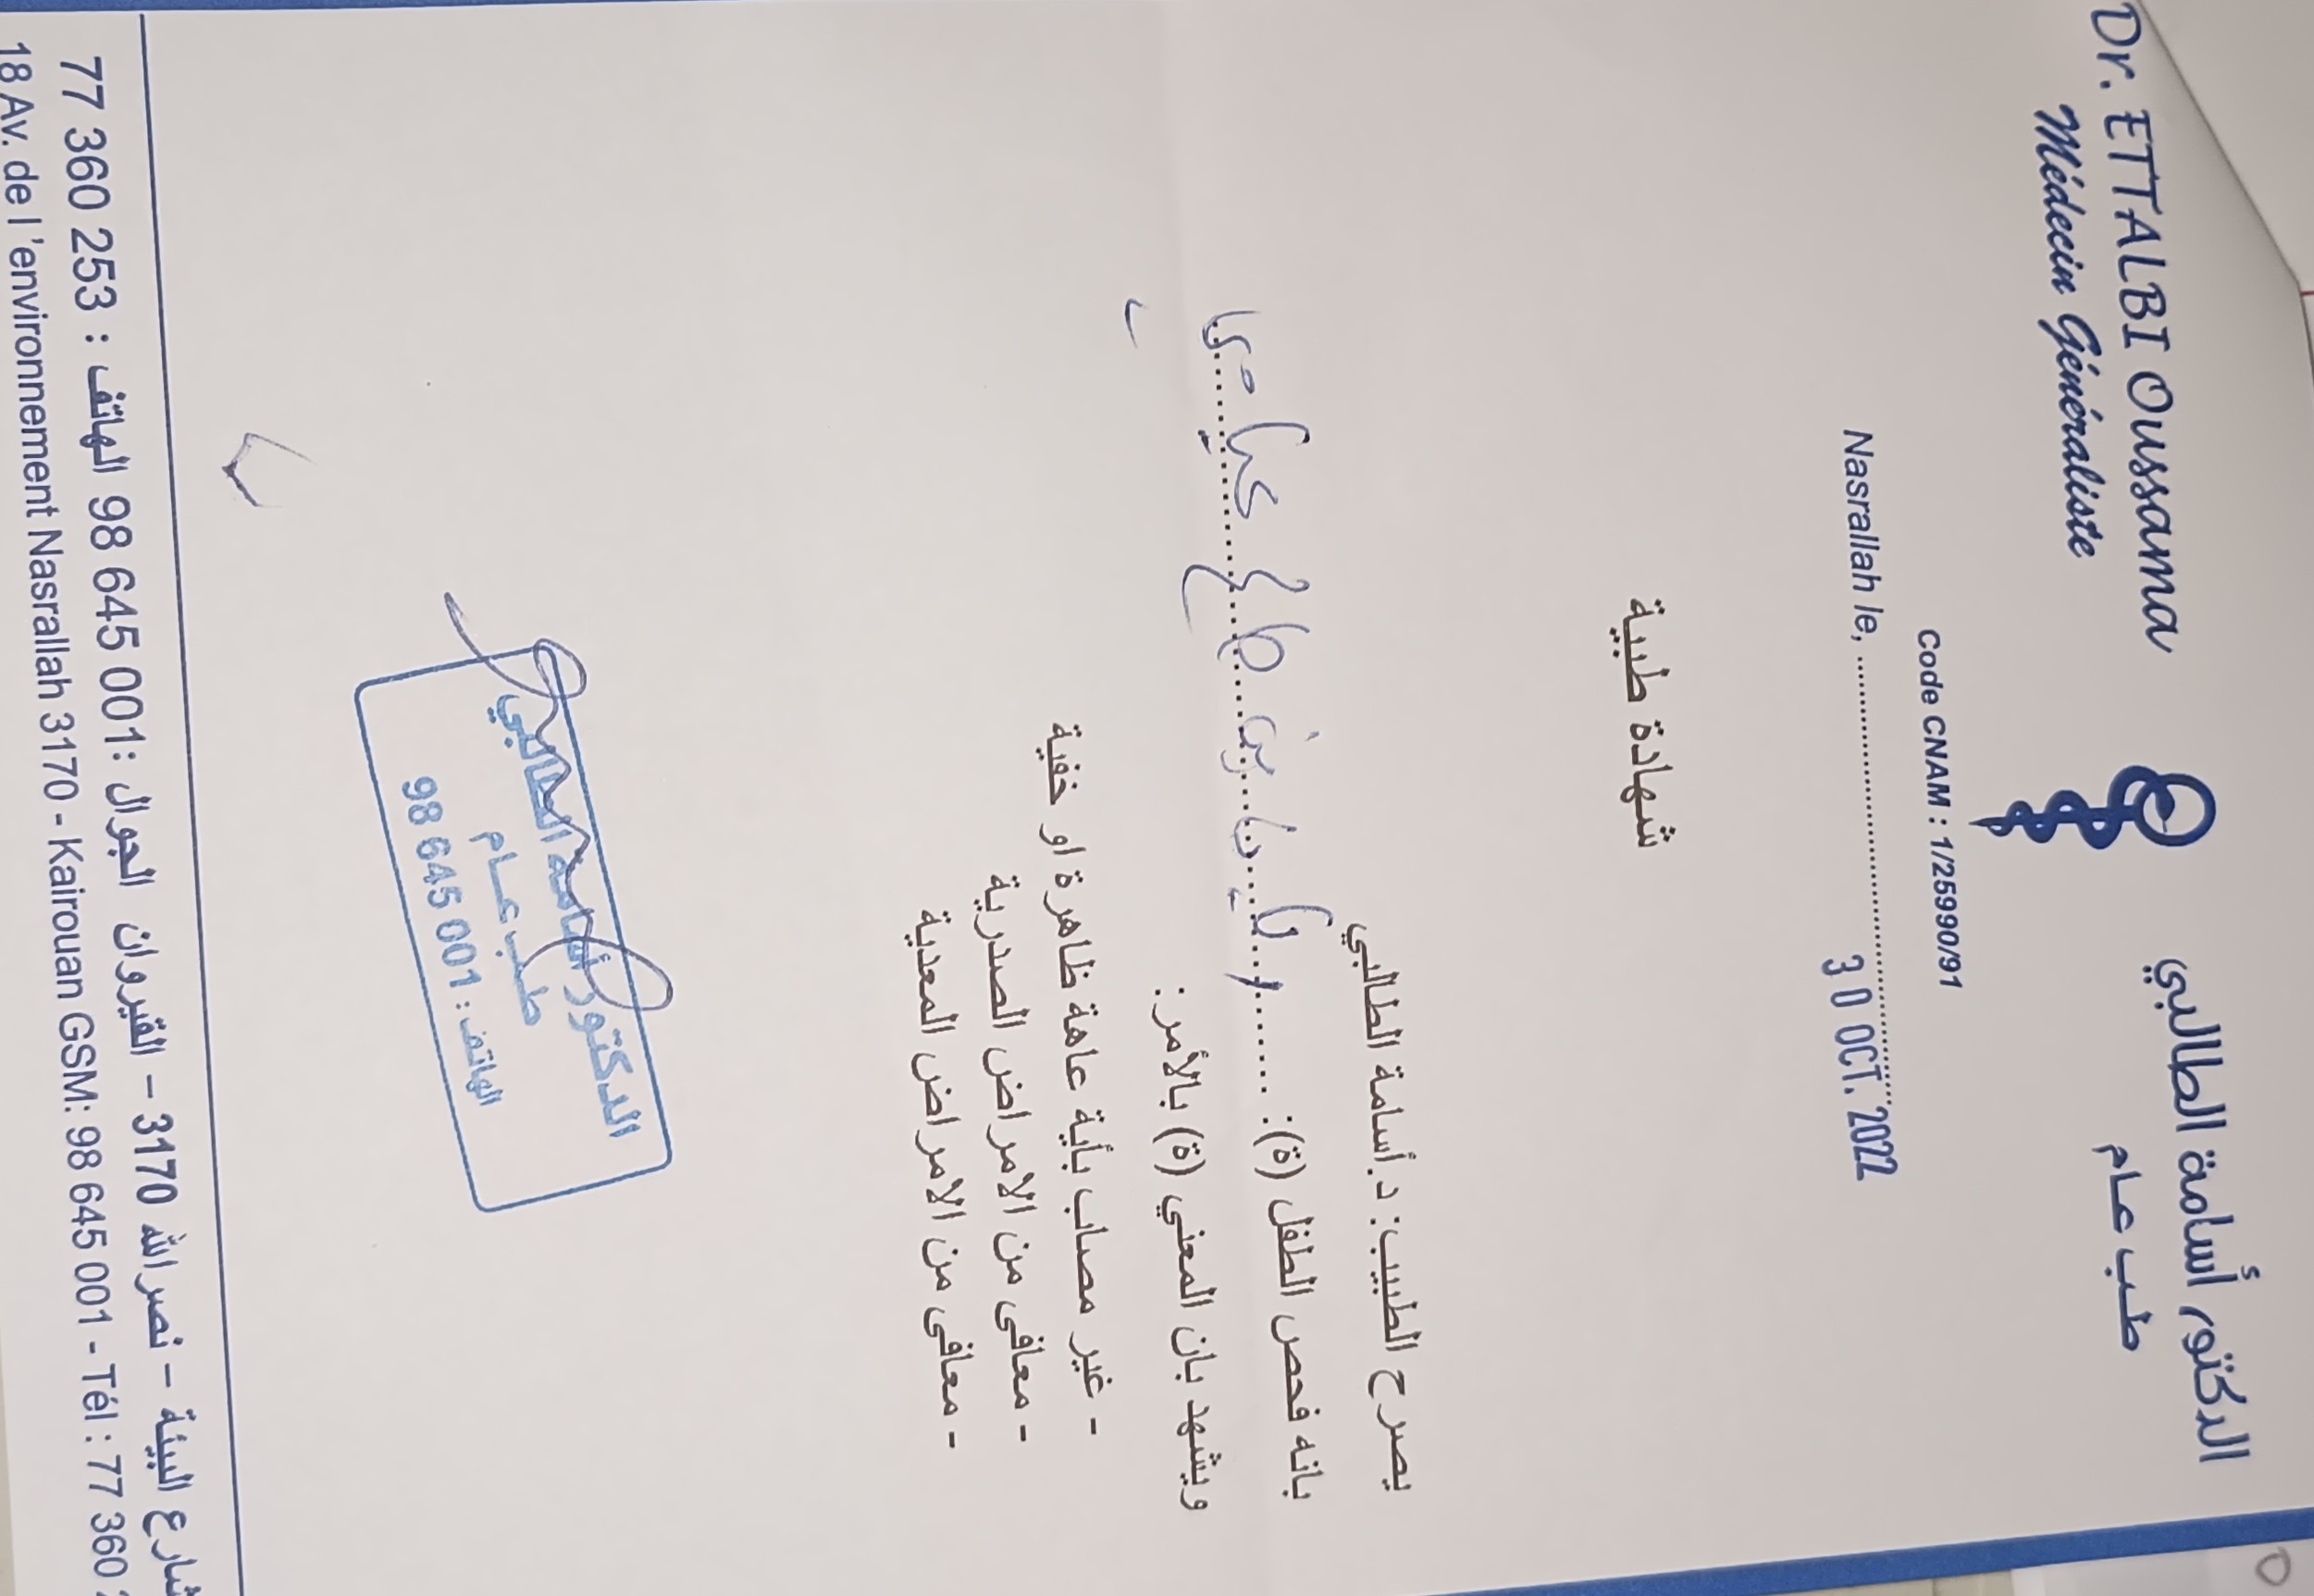 Dr. ETTALBI Oussama
Médecin Généraliste
الدكتور أسامة الطالبي
طب عام
Code CNAM : 1/25990/91
Nasrallah le, ........................ 3 0 OCT. 2022
شهادة طبية
يصرح الطبيب: د.أسامة الطالبي
بانه فحص الطفل (ة):
ويشهد بان المعني (ة) بالأمر:
- غير مصاب بأية عاهة ظاهرة او خفية
- معافى من الامراض الصدرية
- معافى من الامراض المعدية
الدكتور أسامة الطالبي
طب عام
الهاتف : 98 645 001
شارع البيئة – نصر الله 3170 – القيروان الجوال :98 645 001 الهاتف : 77 360 253
18 Av. de l 'environnement Nasrallah 3170 - Kairouan GSM: 98 645 001 - Tél : 77 360